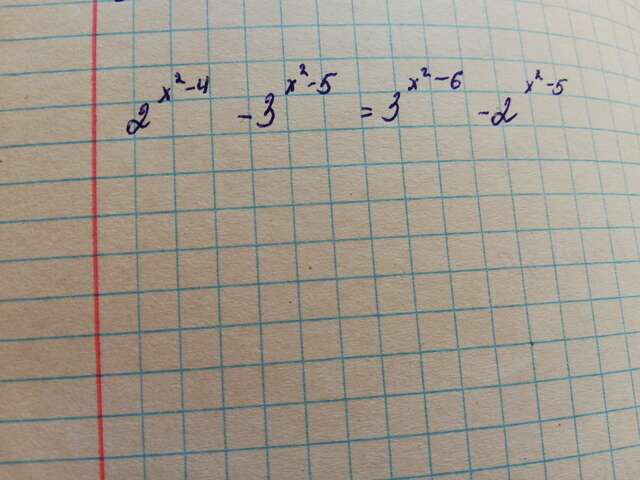 2^{x^2-4} - 3^{x^2-5} = 3^{x^2-6} - 2^{x^2-5}